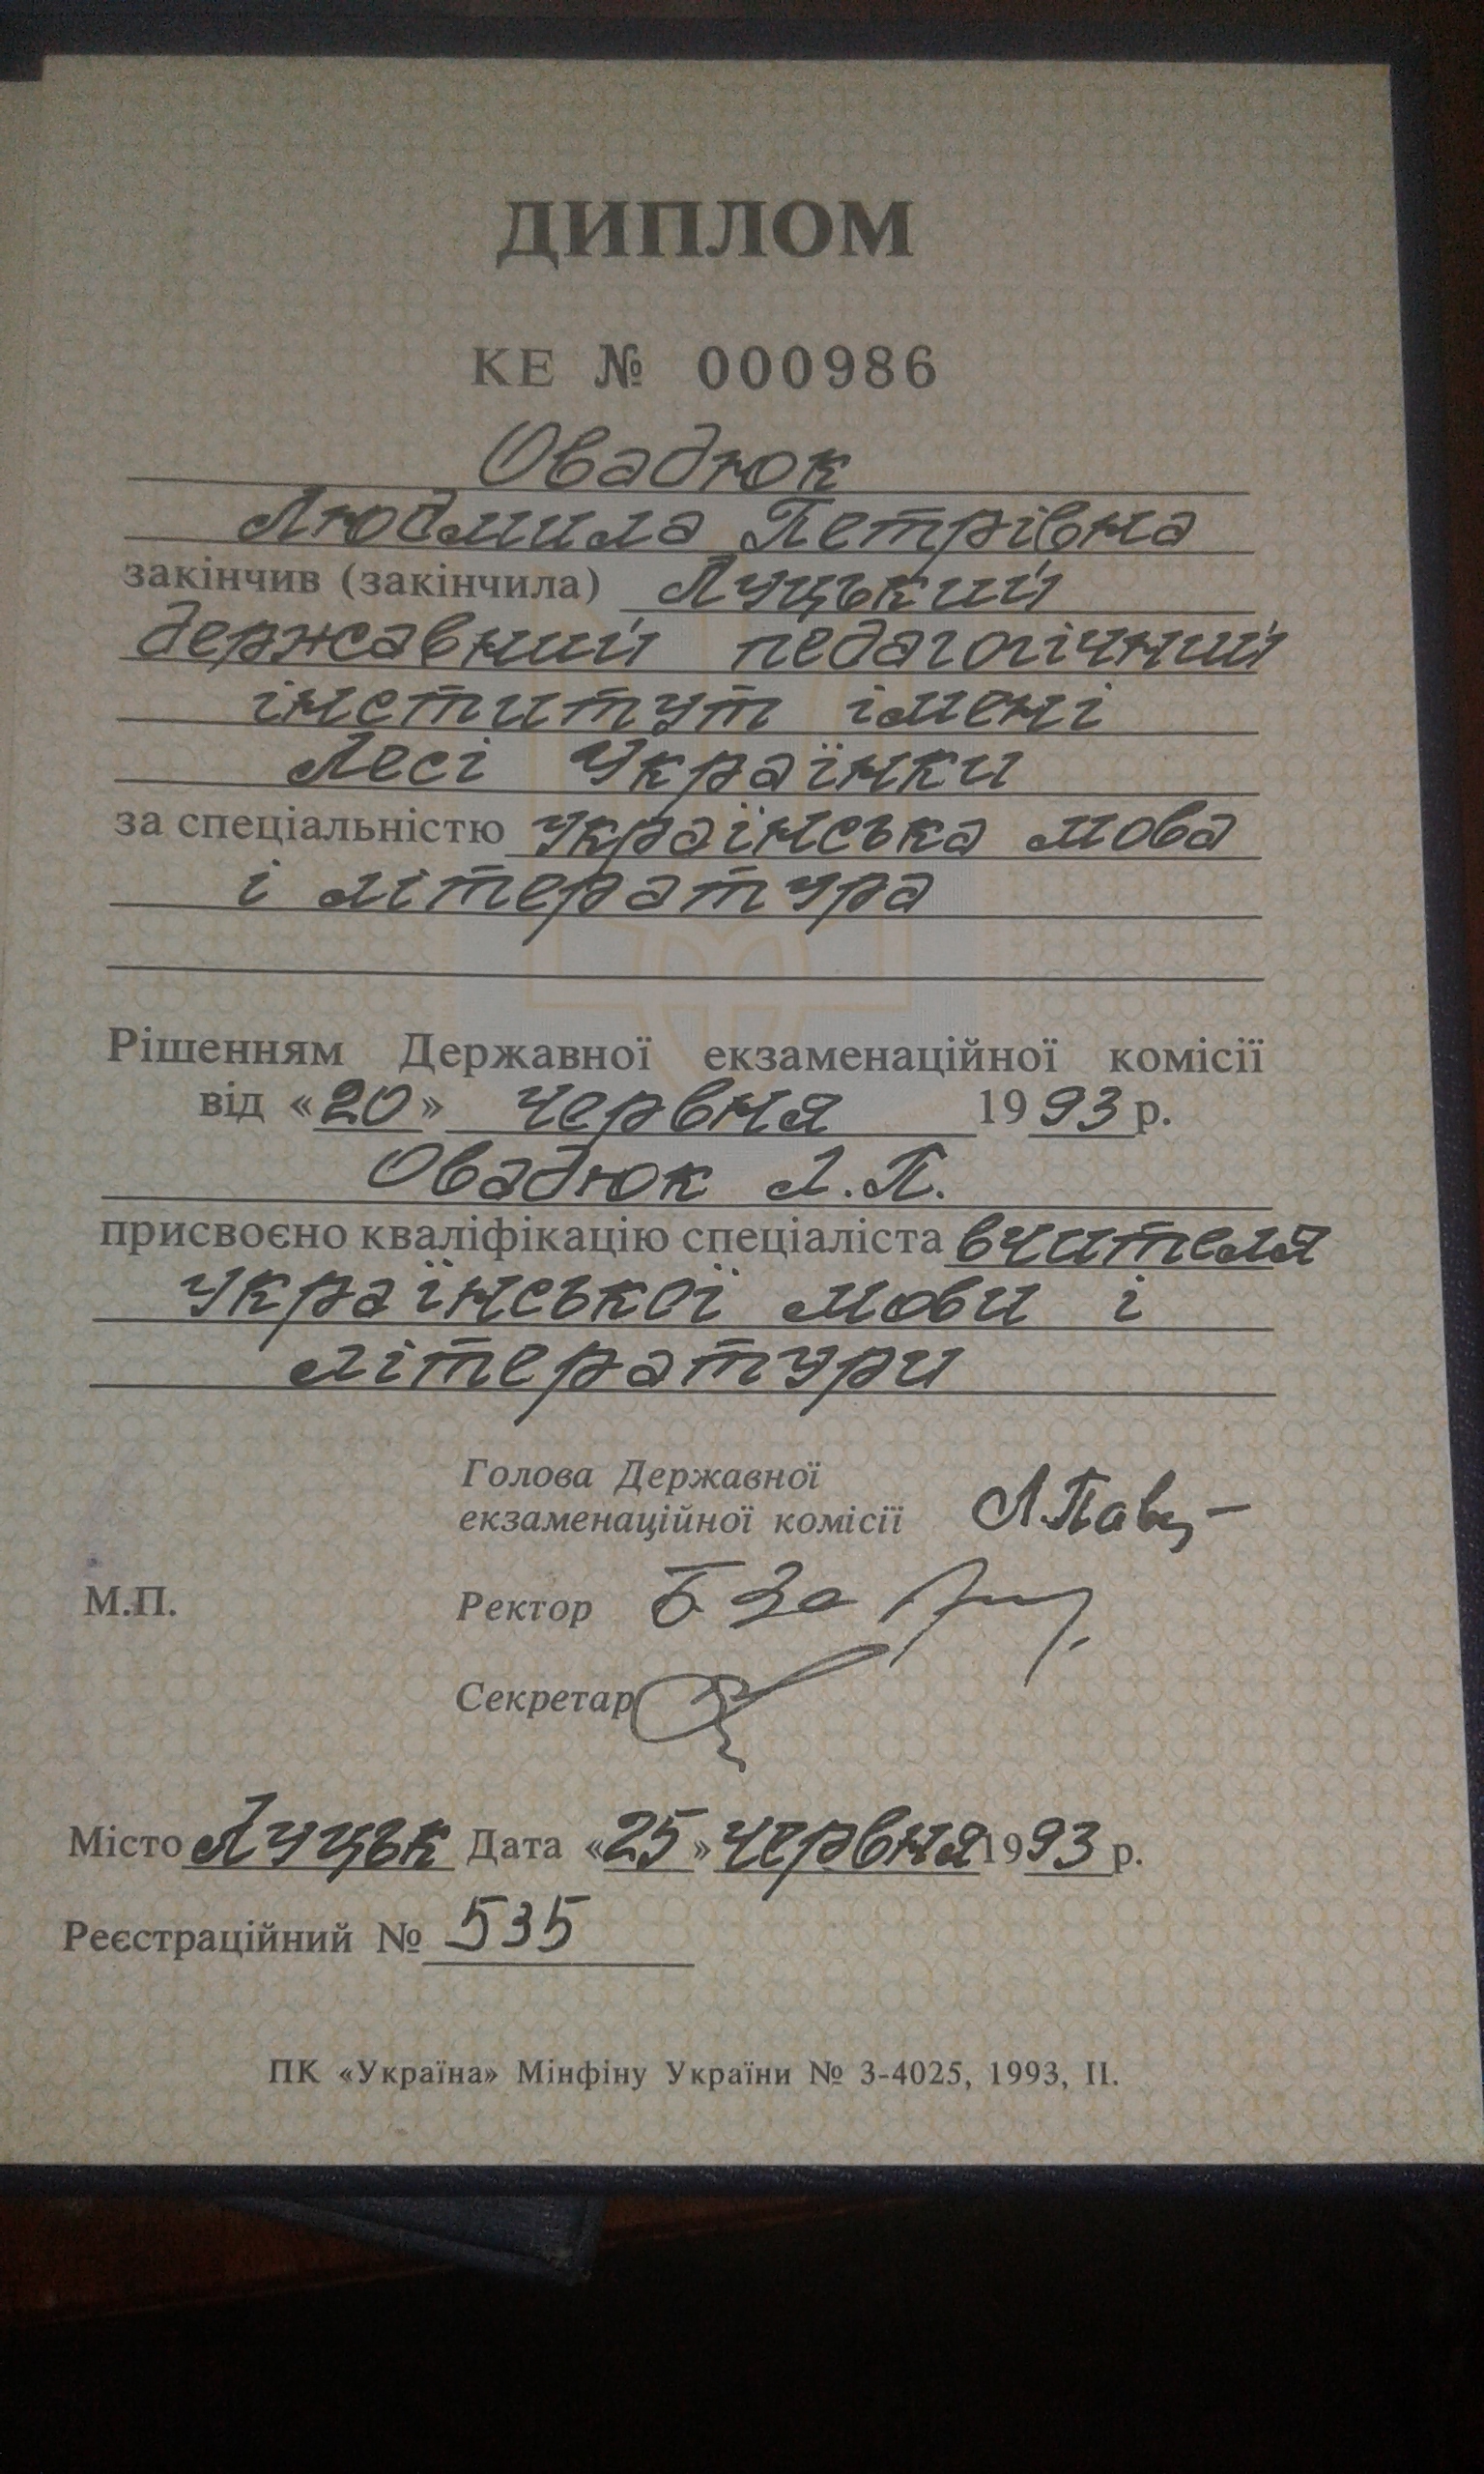 ДИПЛОМ
КЕ № 000986
Овадюк
Людмила Петрівна
закінчив (закінчила) Луцький
державний педагогічний
інститут імені
Лесі Українки
за спеціальністю українська мова
і література
Рішенням Державної екзаменаційної комісії
від «20» червня 1993 р.
Овадюк Л.П.
присвоєно кваліфікацію спеціаліста вчителя
української мови і
літератури
Голова Державної
екзаменаційної комісії
М.П. Ректор
Секретар
Місто Луцьк Дата «25» червня 1993 р.
Реєстраційний № 535
ПК «Україна» Мінфіну України № 3-4025, 1993, II.